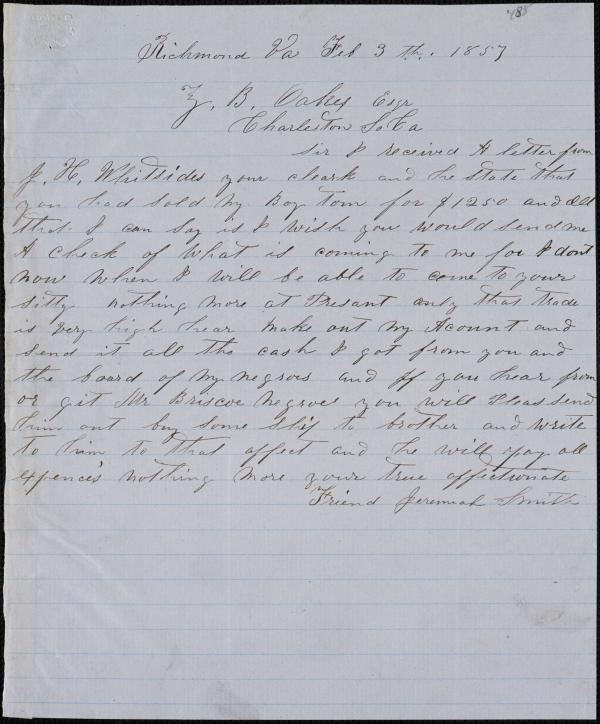 485
Richmond Va Feb 3 th. 1857
Z. B. Oakes Esqr
Charleston So Ca
Sir I received A letter from
J. H. Whitsides your cleark and he State that
you had sold my Boy Tom for $1250 and All
that I can Say is I wish you would send me
A check of what is coming to me for I dont
now when I will be able to come to your
sitty nothing more at Presant only that trade
is very high hear make out my Acount and
send it all the cash I got from you and
the board of my negroes and if you hear from
or git Mr Briscoe negroes you will Pleas send
him out buy some Ship to brother and write
to him to that affect and he will pay all
expences nothing more your true affectionate
Friend Jeremiah Smith